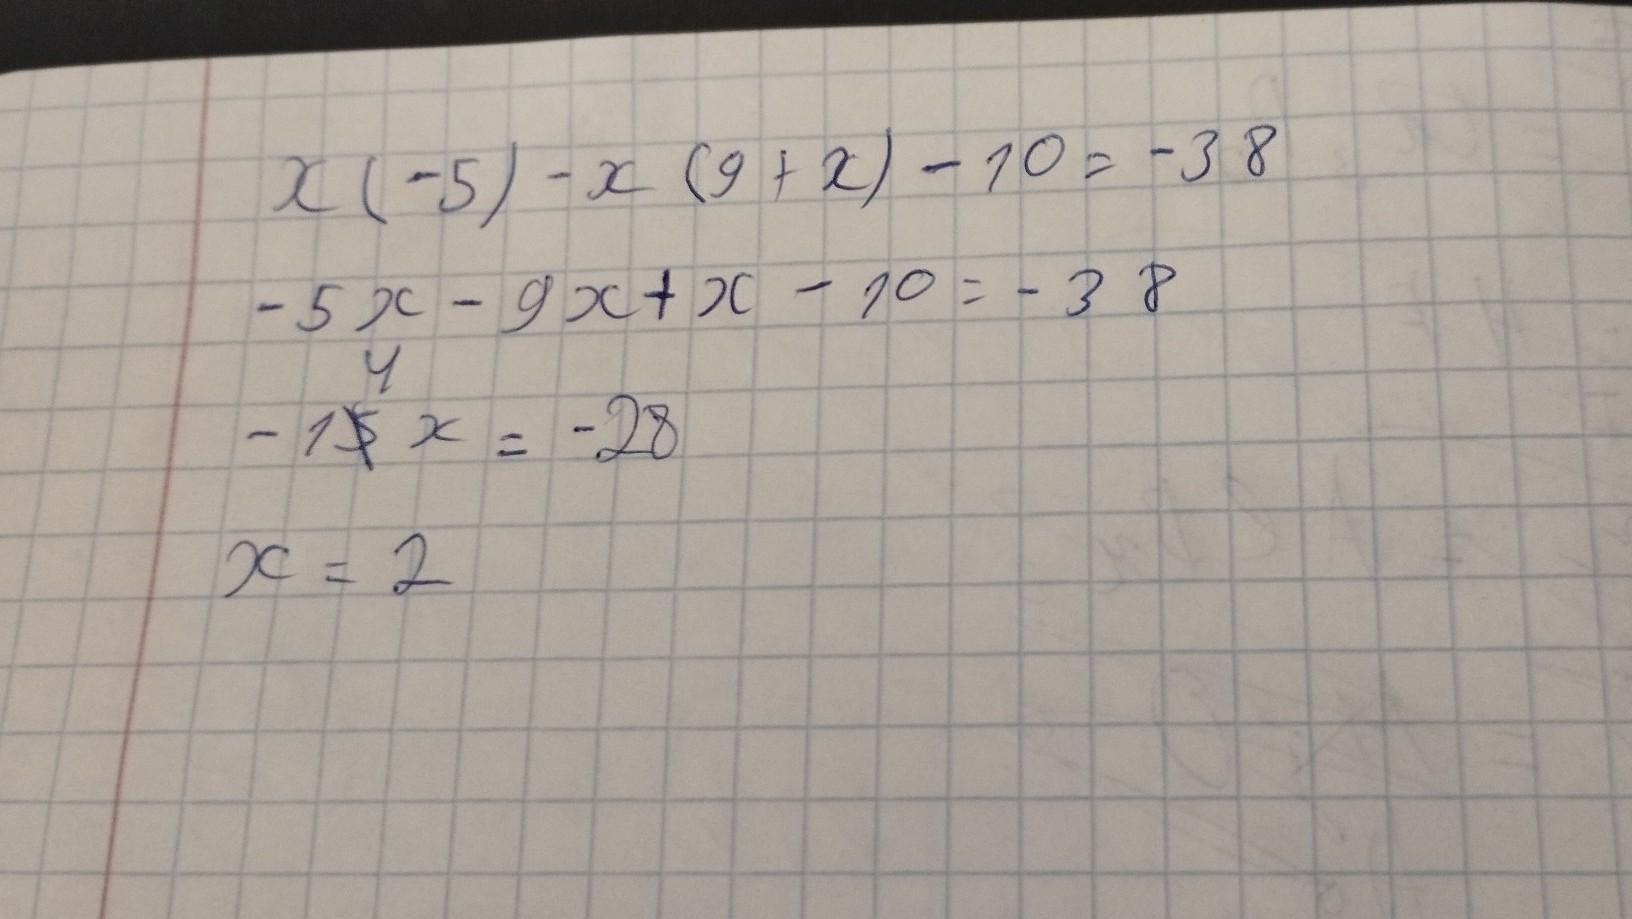 x(-5)-x(9+x)-10=-38
-5x-9x+x-10=-38
4
-15x=-28
x=2